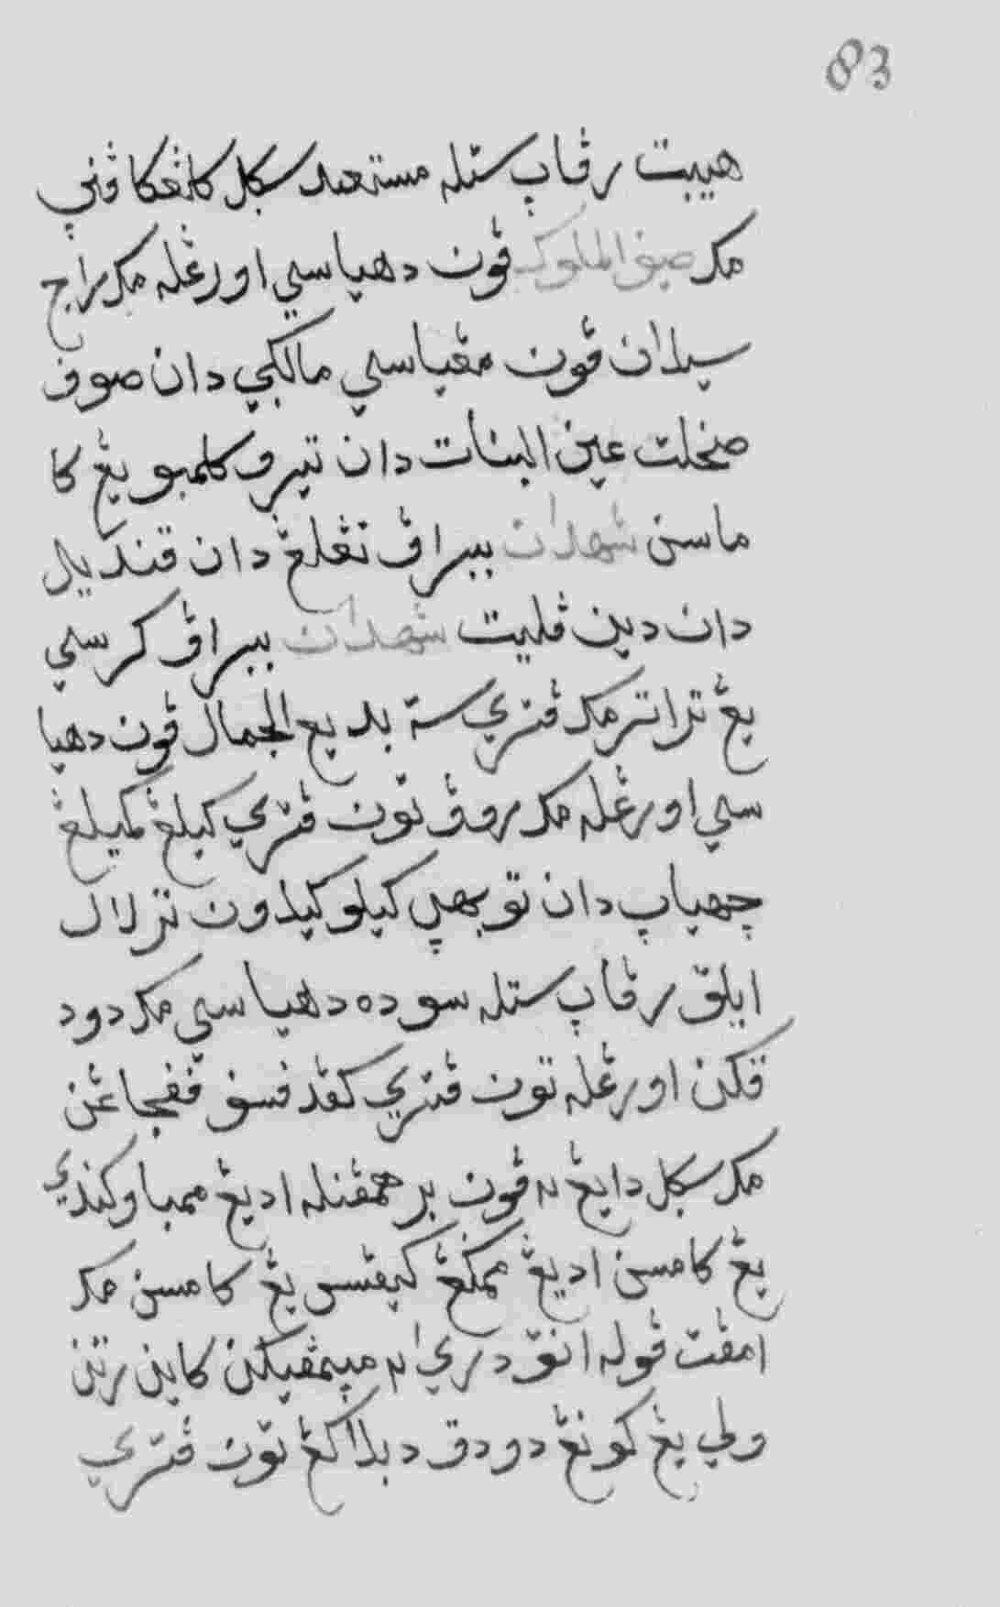 83
هيبت رڤاڽ ستله مستعد سكل كلڠكاڤنڽ
مك صيف الملوك ڤون دهياسي اورڠله مك راج
سيلان ڤون مڠياسي مالكي دان صوف
صخلت عين البنات دان تيرو كلمبو يڠ كا
ماسن شهدان ببراڤ تڠلڠ دان قنديل
دان دين ڤليت شهدان ببراڤ كرسي
يڠ تراتر مك ڤتري ست بديع الجمال ڤون دهيا
سي اورڠله مك روڤ توان ڤتري كيلڠ كميلڠ
چهياڽ دان توبهڽ كيلو كيلاون ترلالو
ايلق رڤاڽ ستله سوده دهياسي مك دود
قكن اورڠله توان ڤتري كڤد ڤڠجاڠن
مك سكل دايڠ٢ ڤون برهمڤنله اديڠ ممباو كندي
يڠ كامسن اديڠ ممكڠ كيڤس يڠ كامسن مك
امڤت ڤوله انق دري٢ ميمڤيكن كاين رنتي
ولي يڠ كونڠ دودق دبلاكڠ توان ڤتري